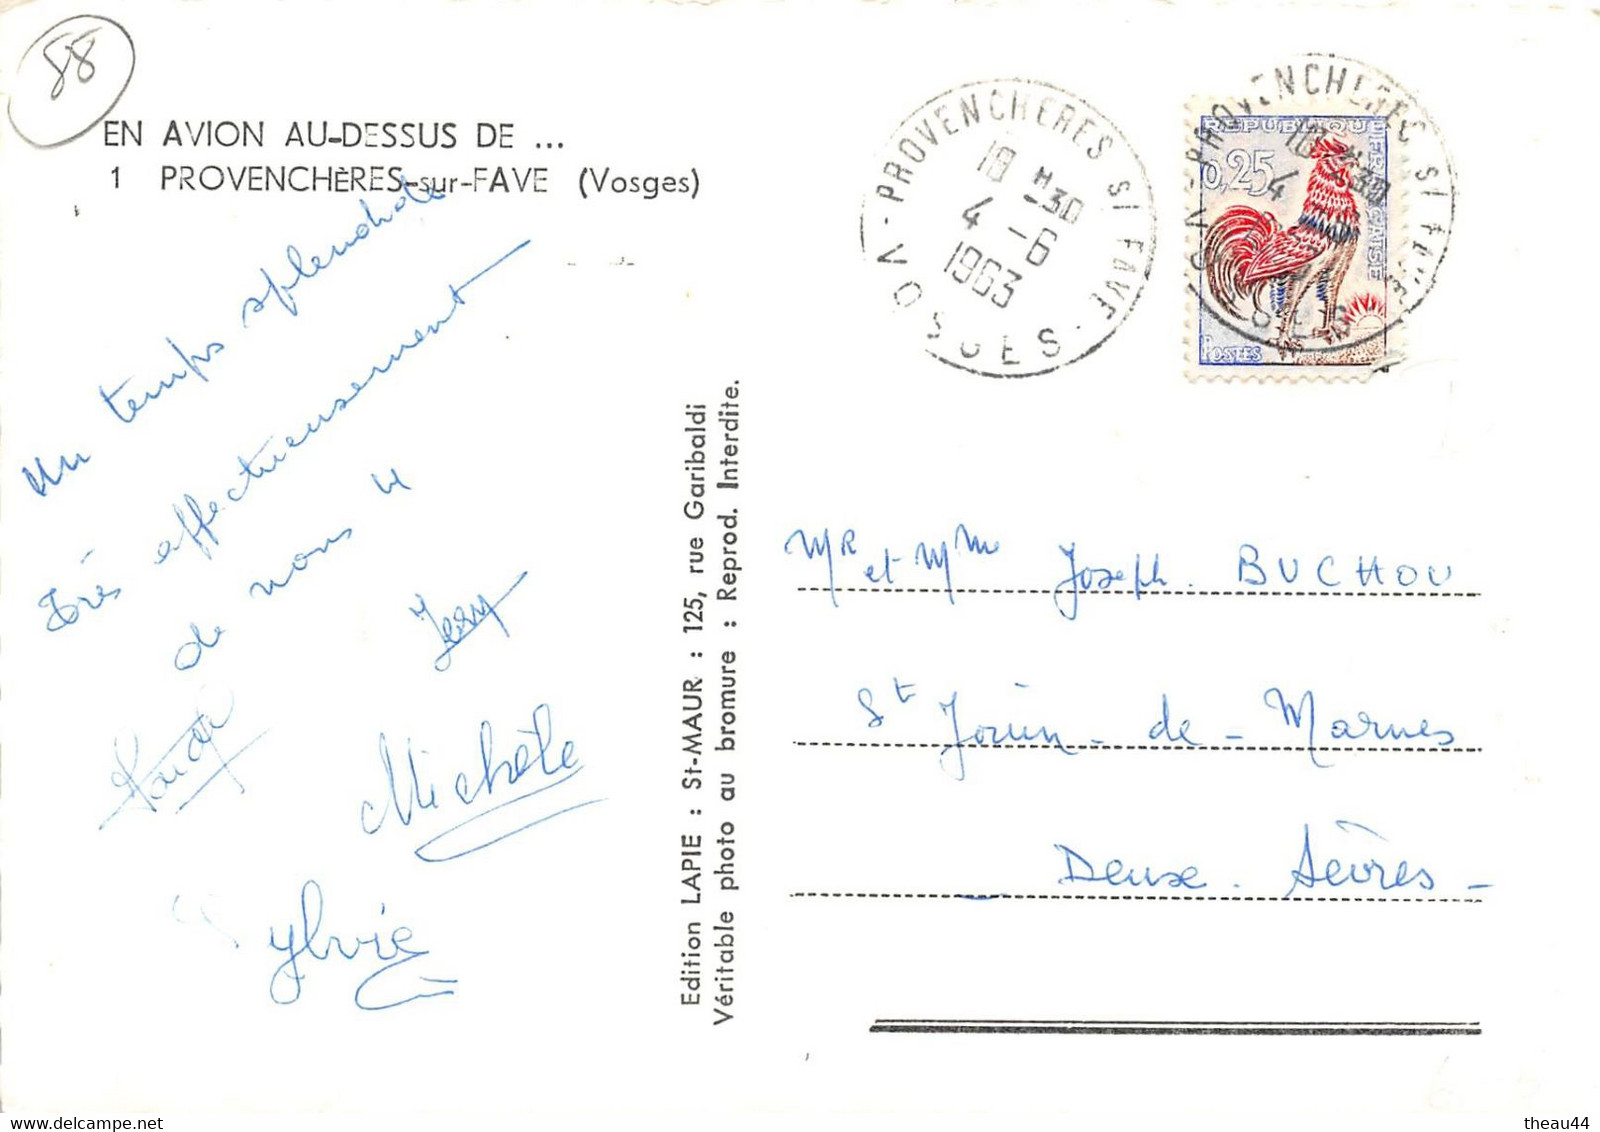 88
EN AVION AU-DESSUS DE ...
1 PROVENCHèRES-sur-FAVE (Vosges)
Un temps splendide
très affectueusement
de nous 4
Jessy
Michèle
Sylvie
Edition LAPIE : St-MAUR : 125, rue Garibaldi
Véritable photo au bromure : Reprod. Interdite.
PROVENCHERES S/ FAVE
18 H 30
4 - 6
1963
VOSGES
REPUBLIQUE FRANCAISE
0,25
POSTES
PROVENCHERES S/ FAVE
18 H 30
4
VOSGES
MR et Mme Joseph BUCHOU
St Jouin - de - Marnes
Deux - Sèvres -
theau44